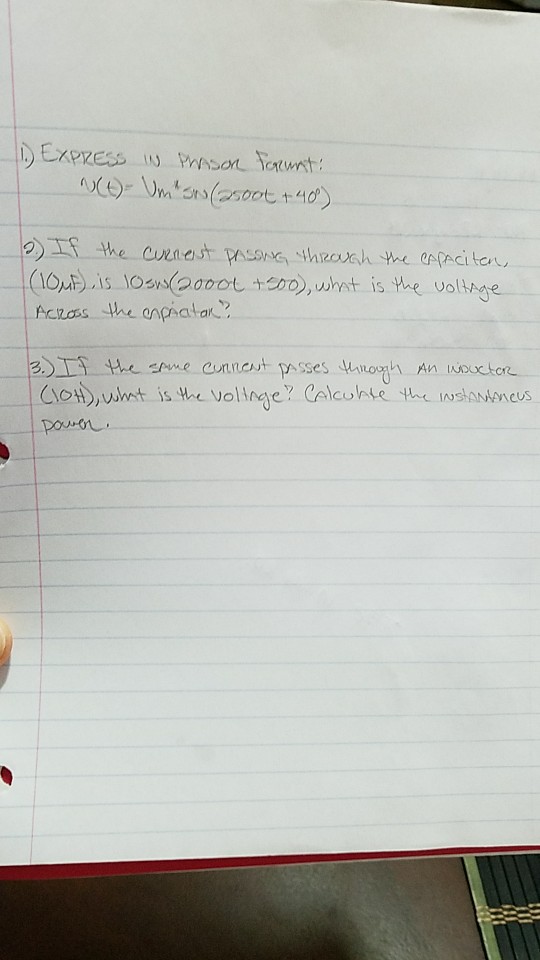 1.) EXPRESS IN PHASOR FORMAT:
V(t) = Vm*sin(2500t + 40°)
2.) If the current passing through the capacitor,
(10µF), is 10sin(2000t + 500), what is the voltage
Across the capacitor?
3.) If the same current passes through an inductor
(10H), what is the voltage? Calculate the instantaneus
power.